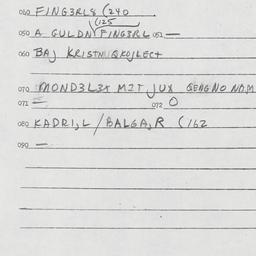 040 FING3RL8 (240
(125
050 A GULDNFING3RL 051 —
060 BAJ KRISTN QKOLECT
070 MOND3L3X MIT JUX QENGNO NDM
071 — 072 O
080 KADRIJL / BALGA,R (162
090 —